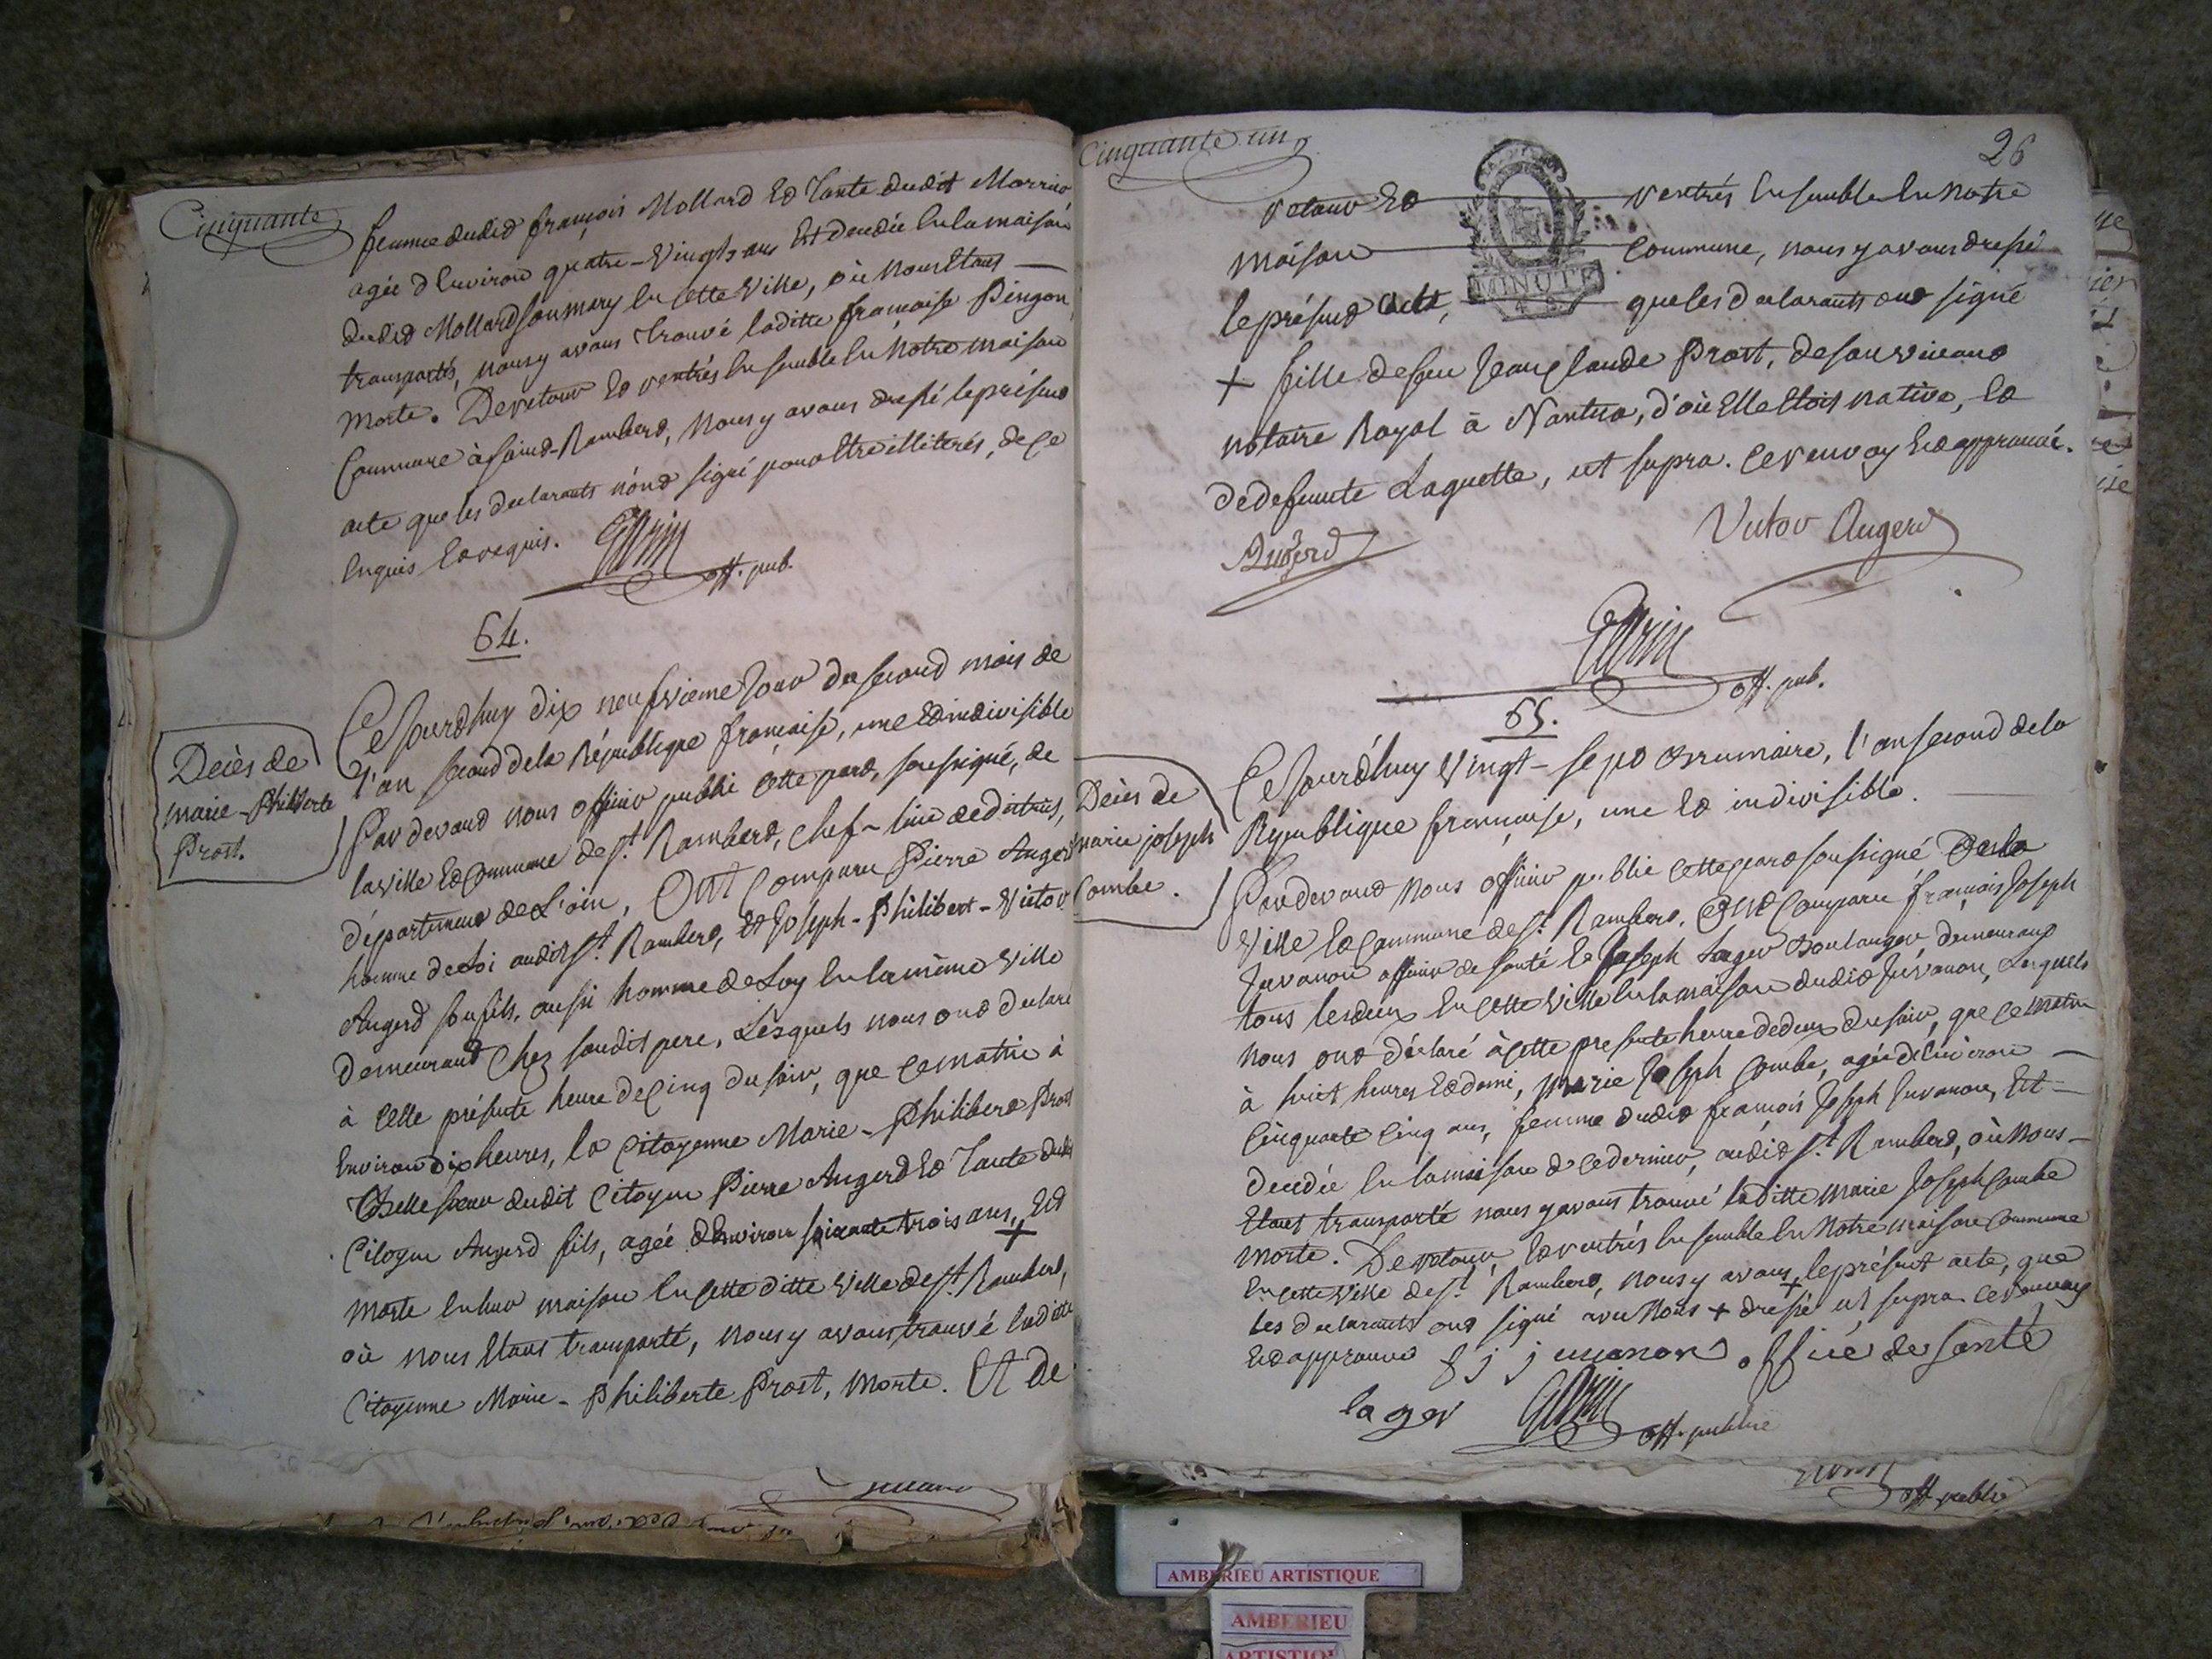 Cinquante
femme dudit françois Mollard Et Tante dudit
agée d'Environ quatre-Vingts ans Est decedée En la maison
dudit Mollard son mary En cette Ville, où nous Etans
transportés, nous y avons trouvé laditte françoise Pingon
Morte. De retour Et rentrés Ensemble En Notre maison
Commune à Saint-Rambert, Nous y avons dressé le présent
acte que les declarants n'ont signé pour être illiterés, de ce
Enquis Et requis.
off. pub.
64.
Decès de
marie-Philiberte
Prost.
Cejourdhuy dix neufvieme Jour du second mois de
l'an second de la République française, une Et indivisible
Pardevant nous officier public cette part, soussigné, de
la ville Et Commune de St. Rambert, chef-lieu de district,
département de L'ain, Ont Comparu Pierre Augerd
homme de Loi audit St. Rambert, Et Joseph-Philibert-Victor
Augerd son fils, aussi homme de Loy En la même Ville
Demeurant Chez son dit pere, Lesquels nous ont declaré
à cette présente heure de Cinq du soir, que ce matin à
Environ dix heures, la Citoyenne Marie-Philiberte Prost
Belle soeur dudit Citoyen Pierre Augerd Et Tante dudit
Citoyen Augerd fils, agée d'Environ soixante trois ans, + Est
Morte En leur maison En cette ditte Ville de St. Rambert,
où nous Etans transporté, nous y avons trouvé laditte
Citoyenne Marie-Philiberte Prost, Morte. Et De
Cinquante un
26
retour Et rentrés Ensemble En Notre
maison Commune, nous y avons dressé
le présent acte, que les declarants ont signé
MINUTE
+ fille de feu Jean Claude Prost, de son vivant
notaire Royal à Nantua, d'où Elle Etoit native, Et
de defunte Laguette, ut supra. Ce renvoy Est approuvé.
Augerd
Victor Augerd
off. pub.
65.
Decès de
marie joseph
Combe.
Cejourd'huy Vingt-sept Brumaire, l'an second de la
République française, une Et indivisible.
Pardevant Nous officier public cette part soussigné De la
Ville Et Commune de St. Rambert, Ont Comparu françois Joseph
Juvanon officier de santé Et Joseph Lager Boulanger, demeurant
tous les deux En cette Ville En la maison dudit Juvanon, Lesquels
nous ont déclaré à cette presente heure de deux du soir, que ce matin
à huit heures Et demi, Marie Joseph Combe, agée d'Environ
Cinquante Cinq ans, femme dudit françois Joseph Juvanon, Est
decedée En la maison de ce dernier, audit St. Rambert, où Nous
Etant transporté nous y avons trouvé laditte Marie Joseph Combe
Morte. De retour, Et rentrés Ensemble En Notre maison Commune
En cette Ville de St. Rambert, nous y avons + le présent acte, que
les declarants ont signé avec Nous + dressé ut supra ce renvoy
Est approuvé
officié de santé
lager
off. public
off. public
AMBERIEU ARTISTIQUE
AMBERIEU
ARTISTIQUE